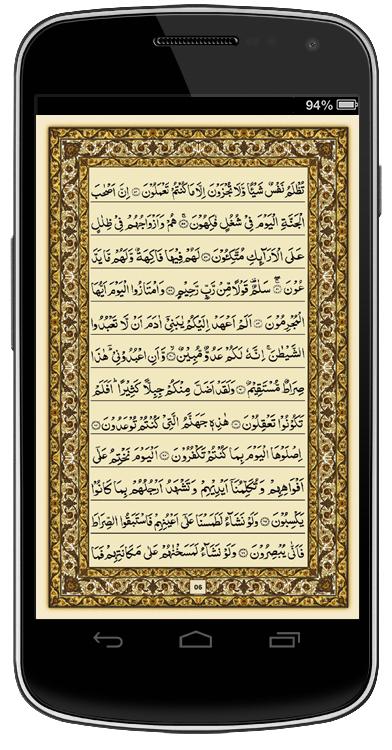 94%
تُظْلَمُ نَفْسٌ شَيْئًا وَّلَا تُجْزَوْنَ اِلَّا مَا كُنْتُمْ تَعْمَلُوْنَ ۝ اِنَّ اَصْحٰبَ
الْجَنَّةِ الْيَوْمَ فِيْ شُغُلٍ فٰكِهُوْنَ ۝ هُمْ وَاَزْوَاجُهُمْ فِيْ ظِلٰلٍ
عَلَى الْاَرَآئِكِ مُتَّكِـُٔوْنَ ۝ لَهُمْ فِيْهَا فَاكِهَةٌ وَّلَهُمْ مَّا يَدَّ
عُوْنَ ۝ سَلٰمٌ قَوْلًا مِّنْ رَّبٍّ رَّحِيْمٍ ۝ وَامْتَازُوا الْيَوْمَ اَيُّهَا
الْمُجْرِمُوْنَ ۝ اَلَمْ اَعْهَدْ اِلَيْكُمْ يٰبَنِيْٓ اٰدَمَ اَنْ لَّا تَعْبُدُوا
الشَّيْطٰنَ اِنَّهٗ لَكُمْ عَدُوٌّ مُّبِيْنٌ ۝ وَّاَنِ اعْبُدُوْنِيْ هٰذَا
صِرَاطٌ مُّسْتَقِيْمٌ ۝ وَلَقَدْ اَضَلَّ مِنْكُمْ جِبِلًّا كَثِيْرًا اَفَلَمْ
تَكُوْنُوْا تَعْقِلُوْنَ ۝ هٰذِهٖ جَهَنَّمُ الَّتِيْ كُنْتُمْ تُوْعَدُوْنَ ۝
اِصْلَوْهَا الْيَوْمَ بِمَا كُنْتُمْ تَكْفُرُوْنَ ۝ اَلْيَوْمَ نَخْتِمُ عَلٰٓى
اَفْوَاهِهِمْ وَتُكَلِّمُنَآ اَيْدِيْهِمْ وَتَشْهَدُ اَرْجُلُهُمْ بِمَا كَانُوْا
يَكْسِبُوْنَ ۝ وَلَوْ نَشَآءُ لَطَمَسْنَا عَلٰٓى اَعْيُنِهِمْ فَاسْتَبَقُوا الصِّرَاطَ
فَاَنّٰى يُبْصِرُوْنَ ۝ وَلَوْ نَشَآءُ لَمَسَخْنٰهُمْ عَلٰى مَكَانَتِهِمْ فَمَا
06